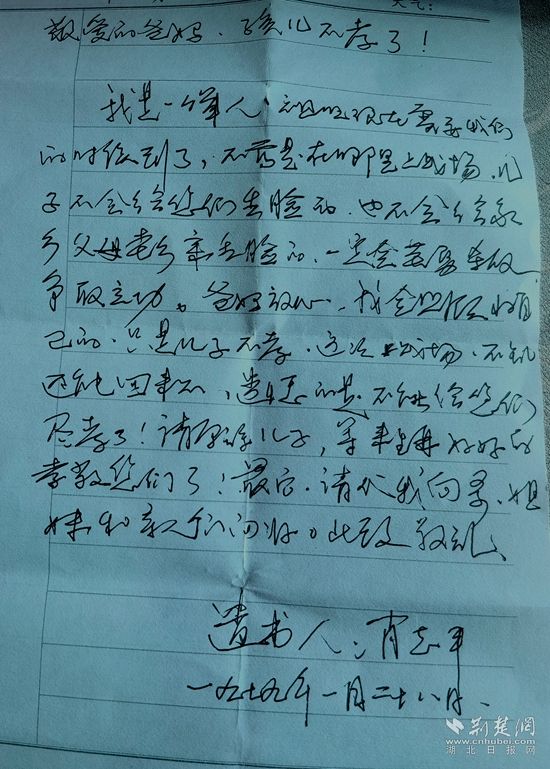 天气:
敬爱的爸妈、孩儿不孝了!
我是一个军人、祖国现在需要我们
的时候到了,不管是在哪里上战场、儿
子不会给您们丢脸的、也不会给家
乡父母老乡亲丢脸的、一定会英勇杀敌
争取立功。爸妈放心、我会照顾好自
己的、只是儿子不孝、这次上战场、不知
还能回来不,遗憾的是不能给您们
尽孝了!请原谅儿子,等来生再好好的
孝敬您们了!最后、请代我向哥、姐
妹和亲人们问好。此致敬礼、
遗书人:肖志平
一九七九年一月二十八日、
荆楚網
www.cnhubei.com
湖北日报网